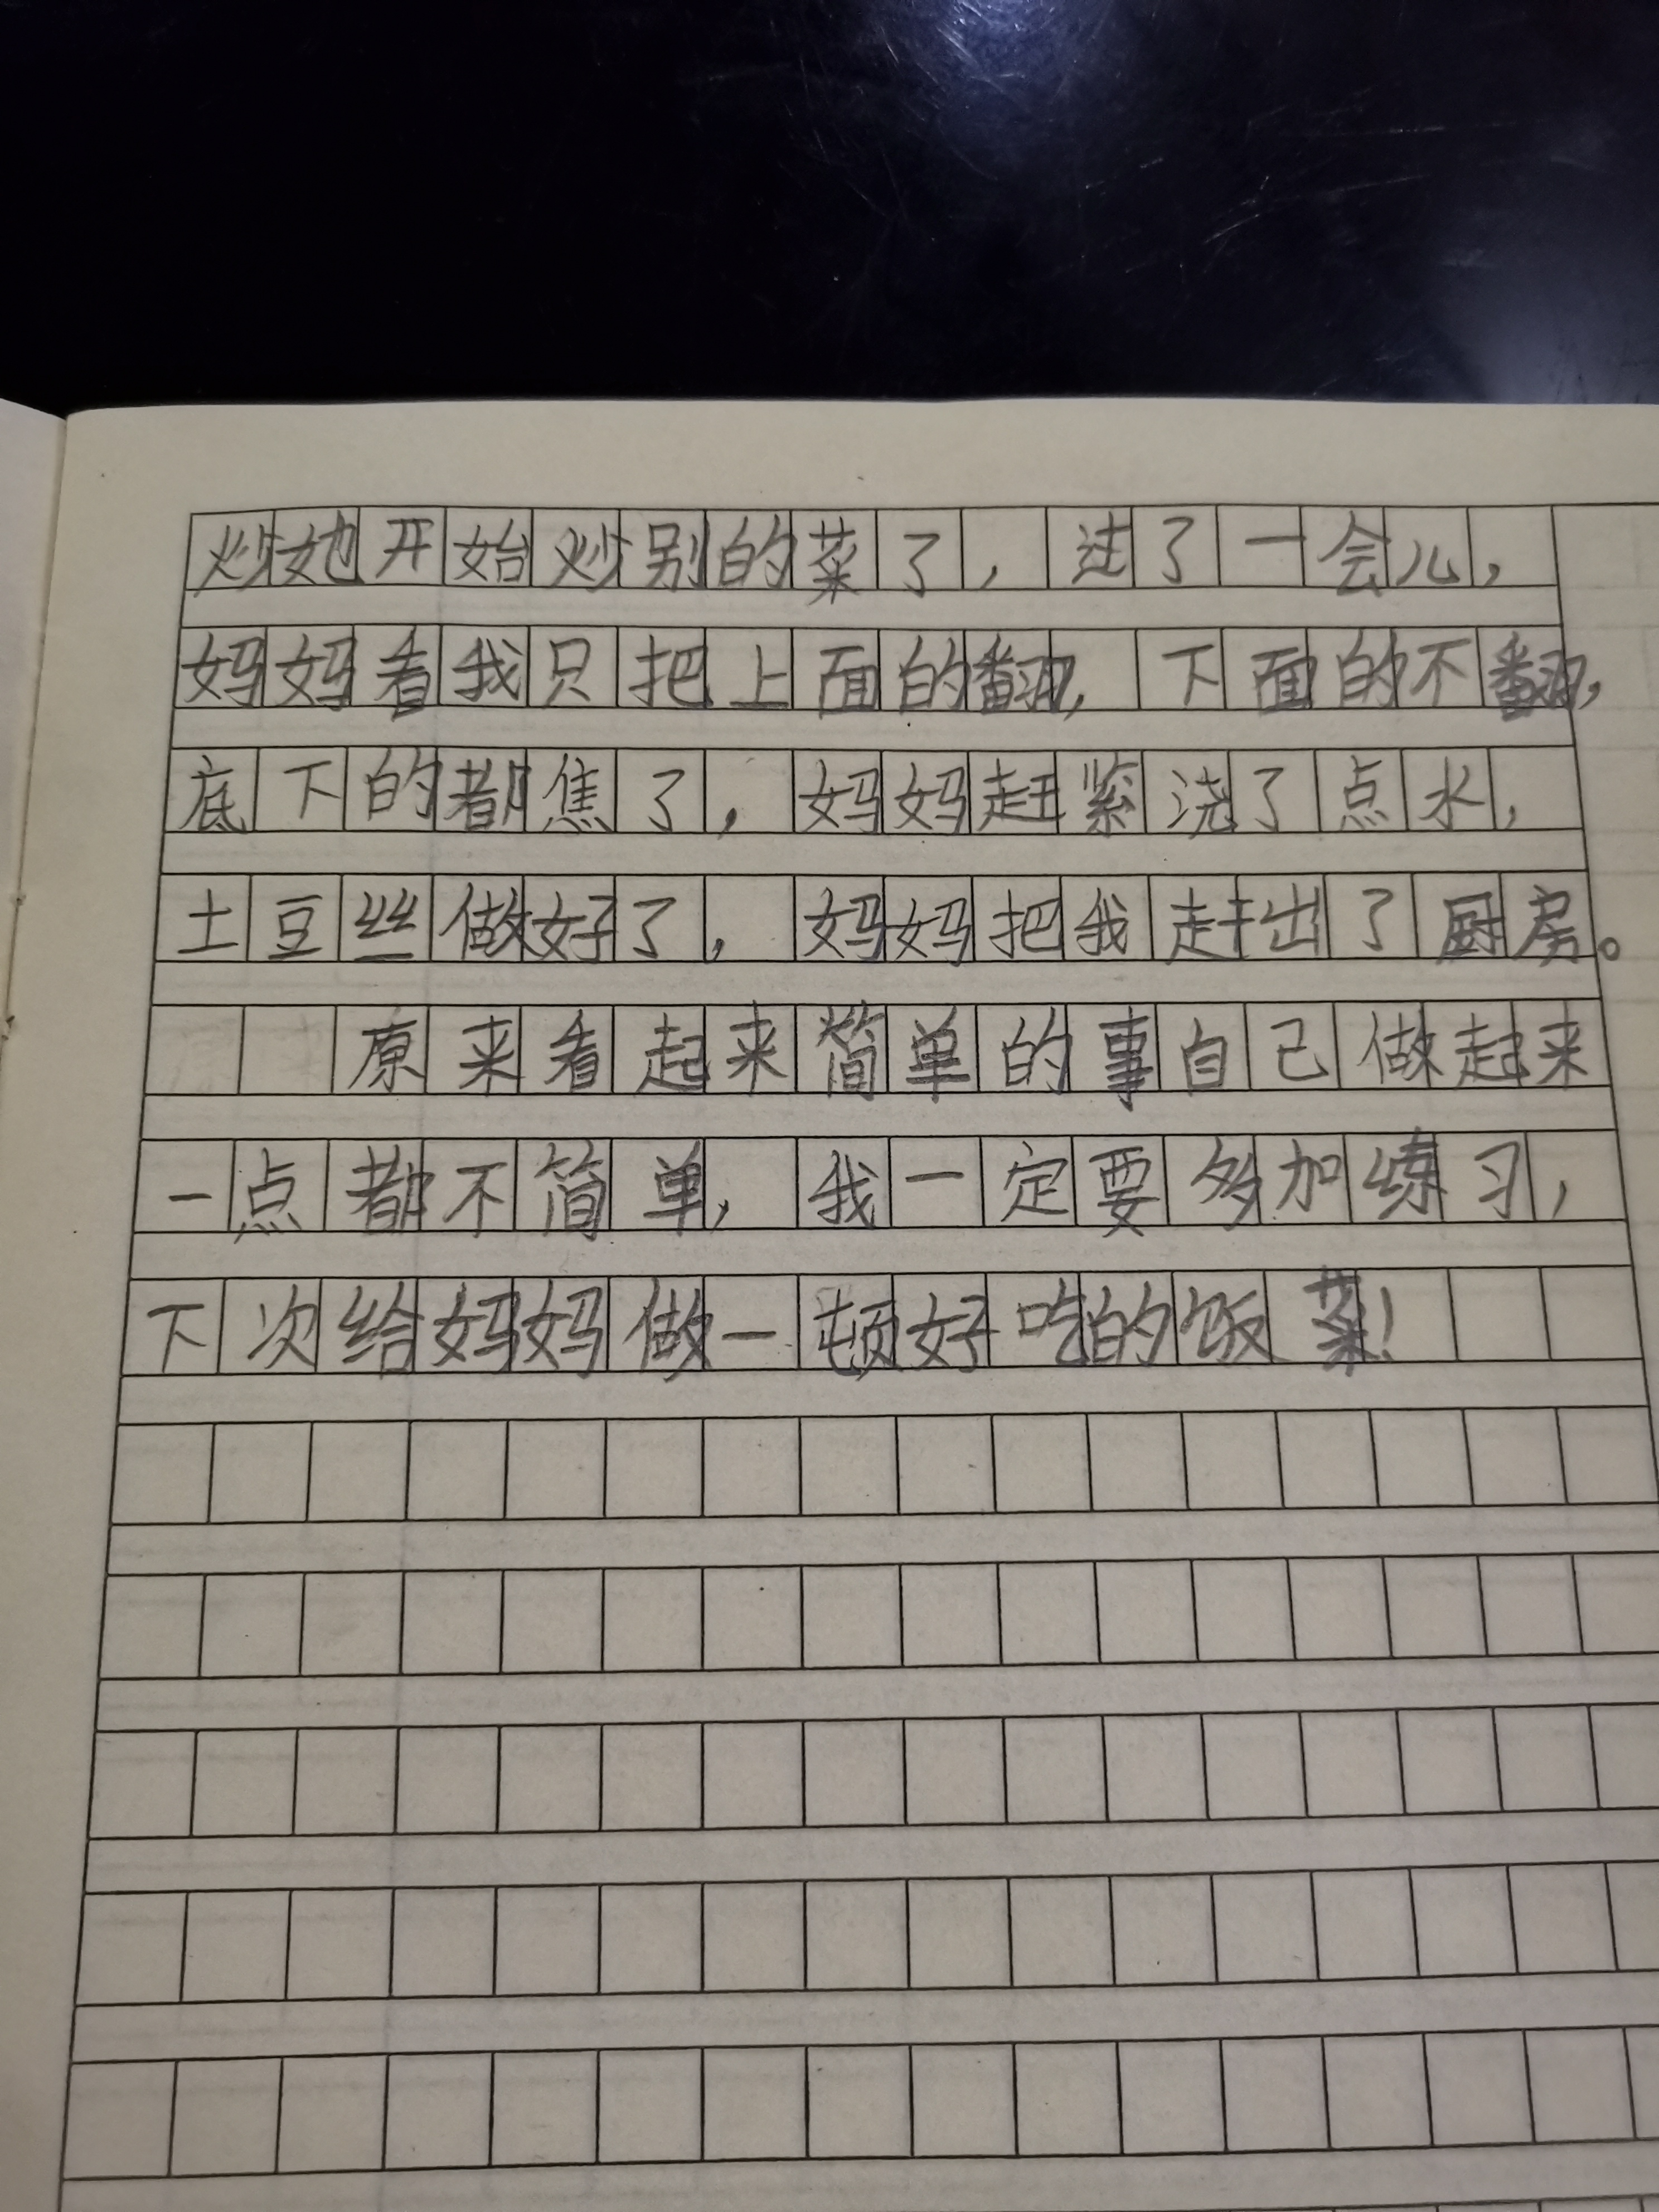 炒她开始炒别的菜了，过了一会儿，
妈妈看我只把上面的翻，下面的不翻，
底下的都焦了，妈妈赶紧浇了点水，
土豆丝做好了，妈妈把我赶出了厨房。
原来看起来简单的事自己做起来
一点都不简单，我一定要多加练习，
下次给妈妈做一顿好吃的饭菜！